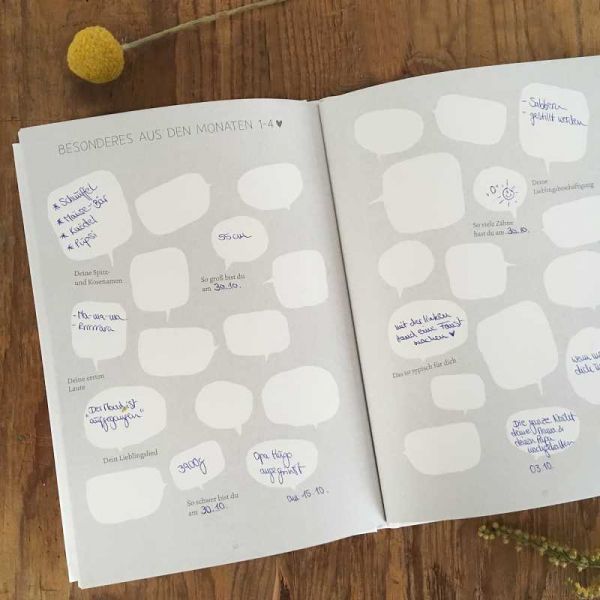 BESONDERES AUS DEN MONATEN 1-4 ♥
* Schnüffel
* Mause-Bär
* Knödel
* Pupsi
Deine Spitz-
und Kosenamen
55cm
So groß bist du
am 30.10.
- Ma-ma-ma
Deine ersten
Laute
"Der Mond ist
aufgegangen"
Dein Lieblingslied
3900g
So schwer bist du
am 30.10.
Opa Hugo
angegrinst
am 15.10.
- Sabbern
- gestillt werden
Deine
Lieblingsbeschäftigung
"0"
So viele Zähne
hast du am 30.10.
mit der linken
Hand eine Faust
machen ♥
Das ist typisch für dich
wenn
dich
Die ganze Nacht
deine Mama &
deinen Papa
03.10.